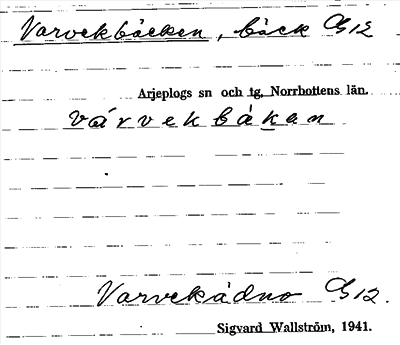 Varvekbäcken, bäck G12
Arjeplogs sn och tg, Norrbottens län.
várvekbäken
Varvekådno G12.
Sigvard Wallström, 1941.